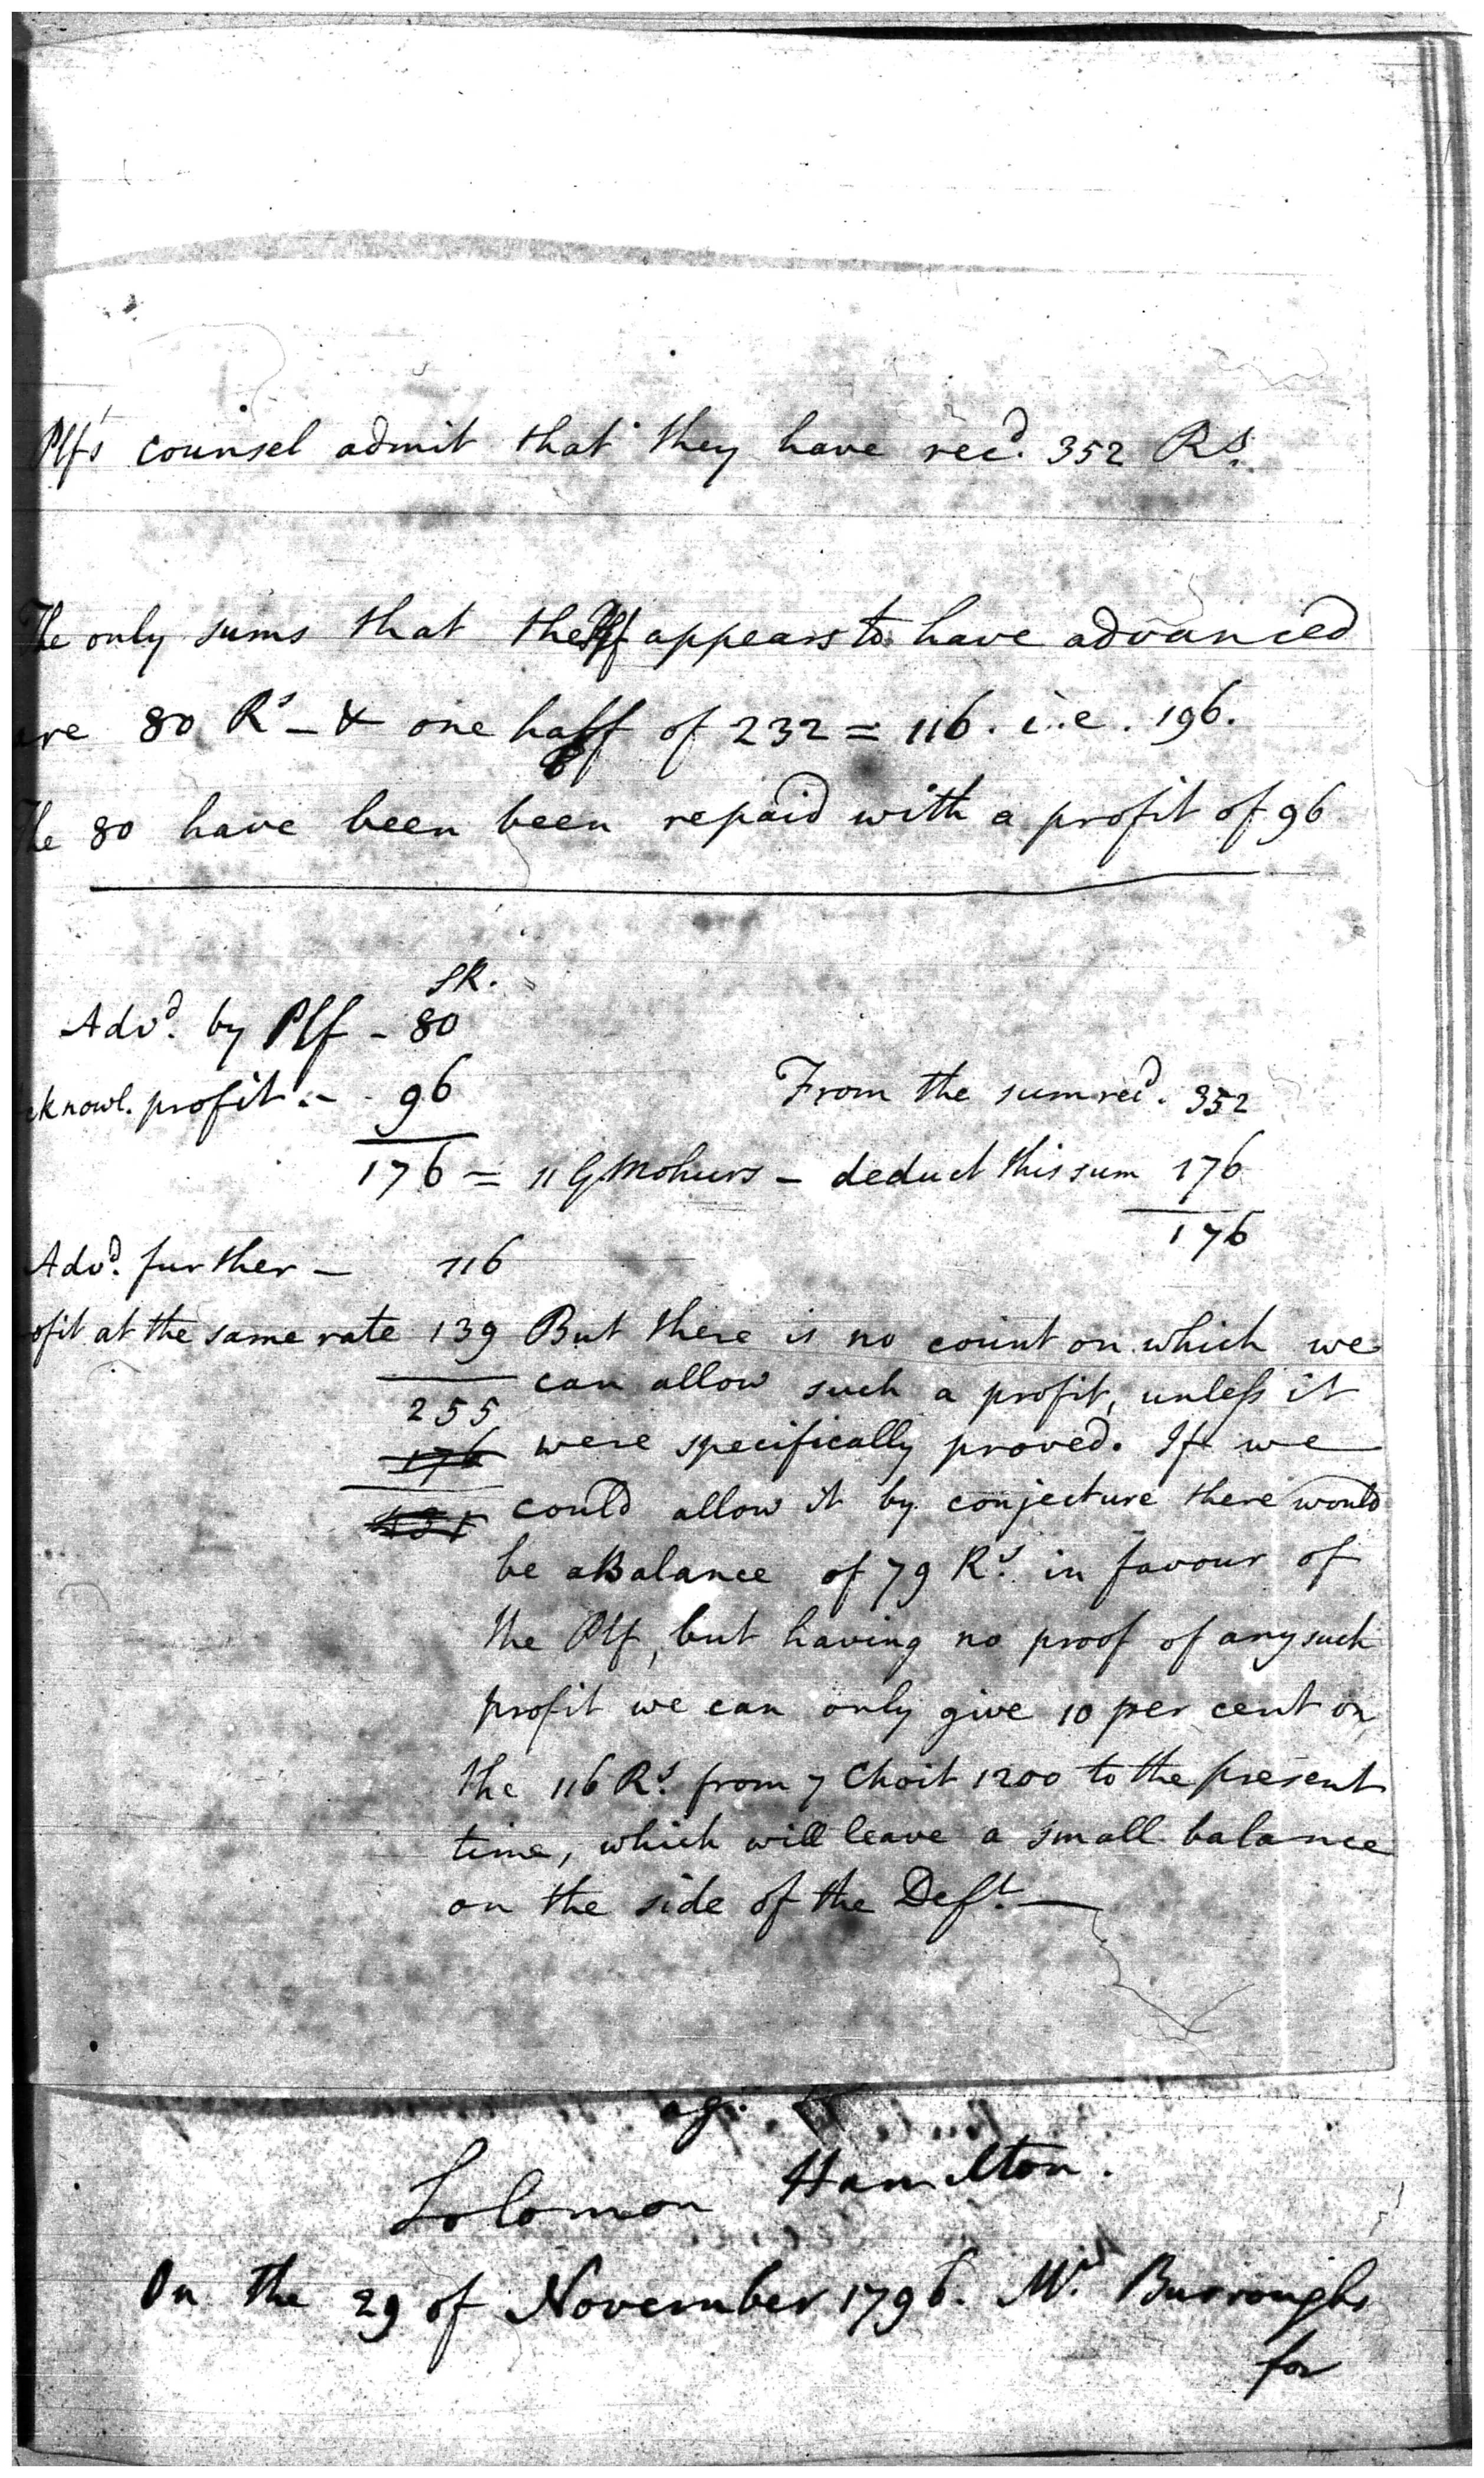 Plf's counsel admit that they have rec.d 352 Rs.
The only sums that the Plf appears to have advanced
are 80 Rs - & one half of 232 = 116. i.e. 196.
The 80 have been been repaid with a profit of 96
SR.
Adv.d by Plf - 80
cknowl. profit - 96
From the sum rec.d 352
176 = 11 G Mohurs - deduct this sum 176
176
Adv.d further - 116
ofit at the same rate 139 But there is no count on which we
255 can allow such a profit, unless it
176 were specifically proved. If we
could allow it by conjecture there would
be a Balance of 79 Rs. in favour of
the Plf, but having no proof of any such
profit we can only give 10 per cent on
the 116 Rs. from 7 Choit 1200 to the present
time, which will leave a small balance
on the side of the Deft. —
ag.
Solomon Hamilton.
On the 29 of November 1796. Mr. Burroughs
for